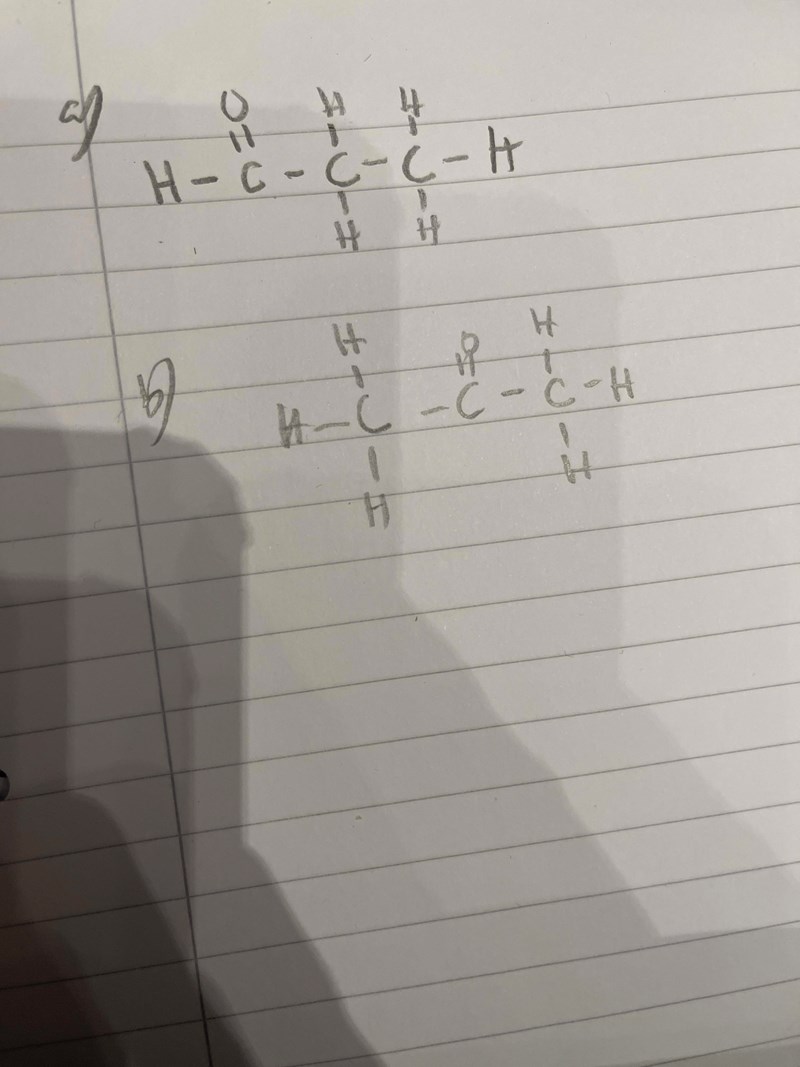 a)
O H H
|| | |
H - C - C - C - H
| |
H H
b)
H O H
| || |
H - C - C - C - H
| |
H H